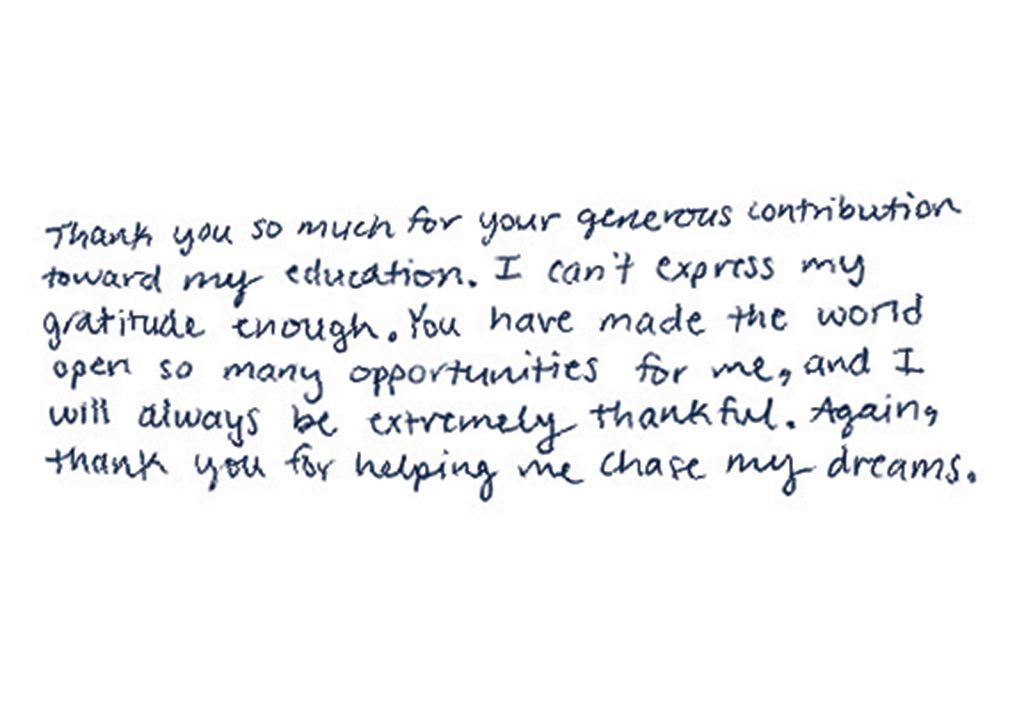 Thank you so much for your generous contribution
toward my education. I can't express my
gratitude enough. You have made the world
open so many opportunities for me, and I
will always be extremely thankful. Again,
thank you for helping me chase my dreams.